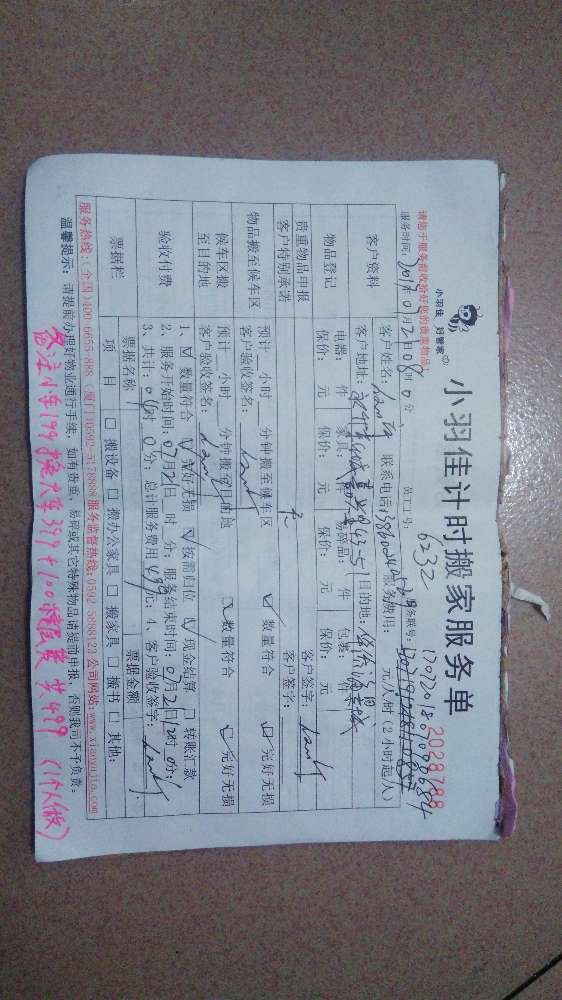 小羽佳 好管家
小羽佳计时搬家服务单
2028788
请您于服务前收拾好您的贵重物品!
服务时间: 2017年07月21日08时0分 员工工号: 6232
客户资料 客户姓名: 联系电话: 服务费用: 元/人/时 (2小时起/人)
客户地址: 目的地:
物品登记 电器: 件 家具: 件 易碎品: 件 包装: 件
保价: 元 保价: 元 保价: 元 保价: 元
贵重物品申报 客户签字:
客户特别承诺 无 客户签字:
物品搬至候车区 预计 小时 分钟搬至候车区 ☑数量符合 ☑完好无损
客户验收签名:
候车区搬至目的地 预计 小时 分钟搬至目的地 ☑数量符合 ☑完好无损
客户验收签名:
验收付费 1、☑数量符合 ☑完好无损 ☑按需归位 ☑现金结算 □转账汇款
2、服务开始时间: 07月21日 时 分; 服务结束时间: 07月21日12时0分;
3、共计: 时0分; 总计服务费用499元; 4、客户验收签字:
票据栏 票据名称 票据金额
项目 □搬设备 □搬办公家具 □搬家具 □搬书 □其他:
服务热线:(全国)400-6655-888 (厦门)0592-5178888 服务监督热线:0592-5898123 公司网站:www.xiaoyujia.com
温馨提示: 请提前办理好物业通行手续, 如有贵重、易碎或其它特殊物品请提前申报, 否则我司不予负责。
备注小车199换大车399+100楼层费 共499 (1个人做)